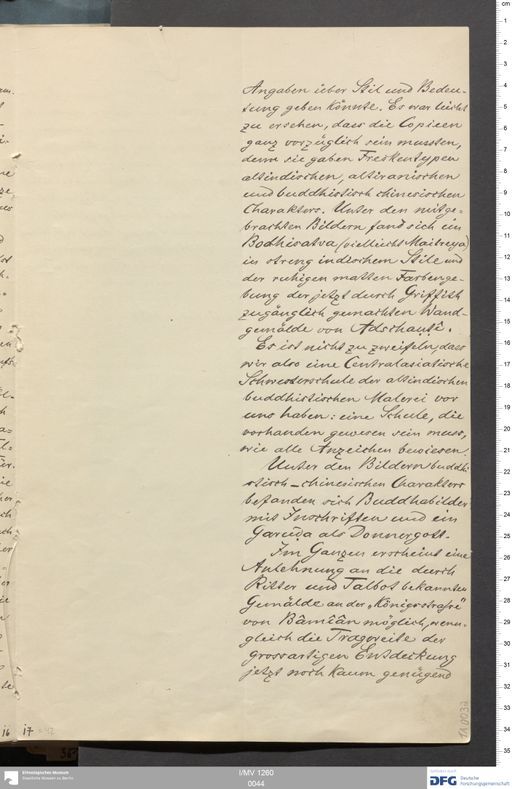 Angaben ueber Stil und Bedeu-
tung geben könnte. Es war leicht
zu ersehen, dass die Copieen
ganz vorzüglich sein mussten,
denn sie gaben Freskentypen
altindischen, altiranischen
und buddhistisch chinesischen
Charakters. Unter den mitge-
brachten Bildern fand sich ein
Bodhisatva (vielleicht Maitreya)
in streng indischem Stile und
der ruhigen matten Farbenge-
bung der jetzt durch Griffith
zugänglich gemachten Wand-
gemälde von Adschanti.
Es ist nicht zu zweifeln, dass
wir also eine Centralasiatische
Schwesterschule der altindischen
buddhistischen Malerei vor
uns haben: eine Schule, die
vorhanden gewesen sein muss,
wie alle Anzeichen bewiesen.
Unter den Bildern buddhi-
stisch-chinesischen Charakters
befanden sich Buddhabilder
mit Inschriften und ein
Garuḍa als Donnergott.
Im Ganzen erscheint eine
Anlehnung an die durch
Ritter und Talbot bekannten
Gemälde an der „Königsstrasse"
von Bâmîân möglich, wenn-
gleich die Tragweite der
grossartigen Entdeckung
jetzt noch kaum genügend
16 17
I/MV 1260
0044
Ethnologisches Museum
Staatliche Museen zu Berlin
DFG Deutsche
Forschungsgemeinschaft
cm
1
2
3
4
5
6
7
8
9
10
11
12
13
14
15
16
17
18
19
20
21
22
23
24
25
26
27
28
29
30
31
32
33
34
35